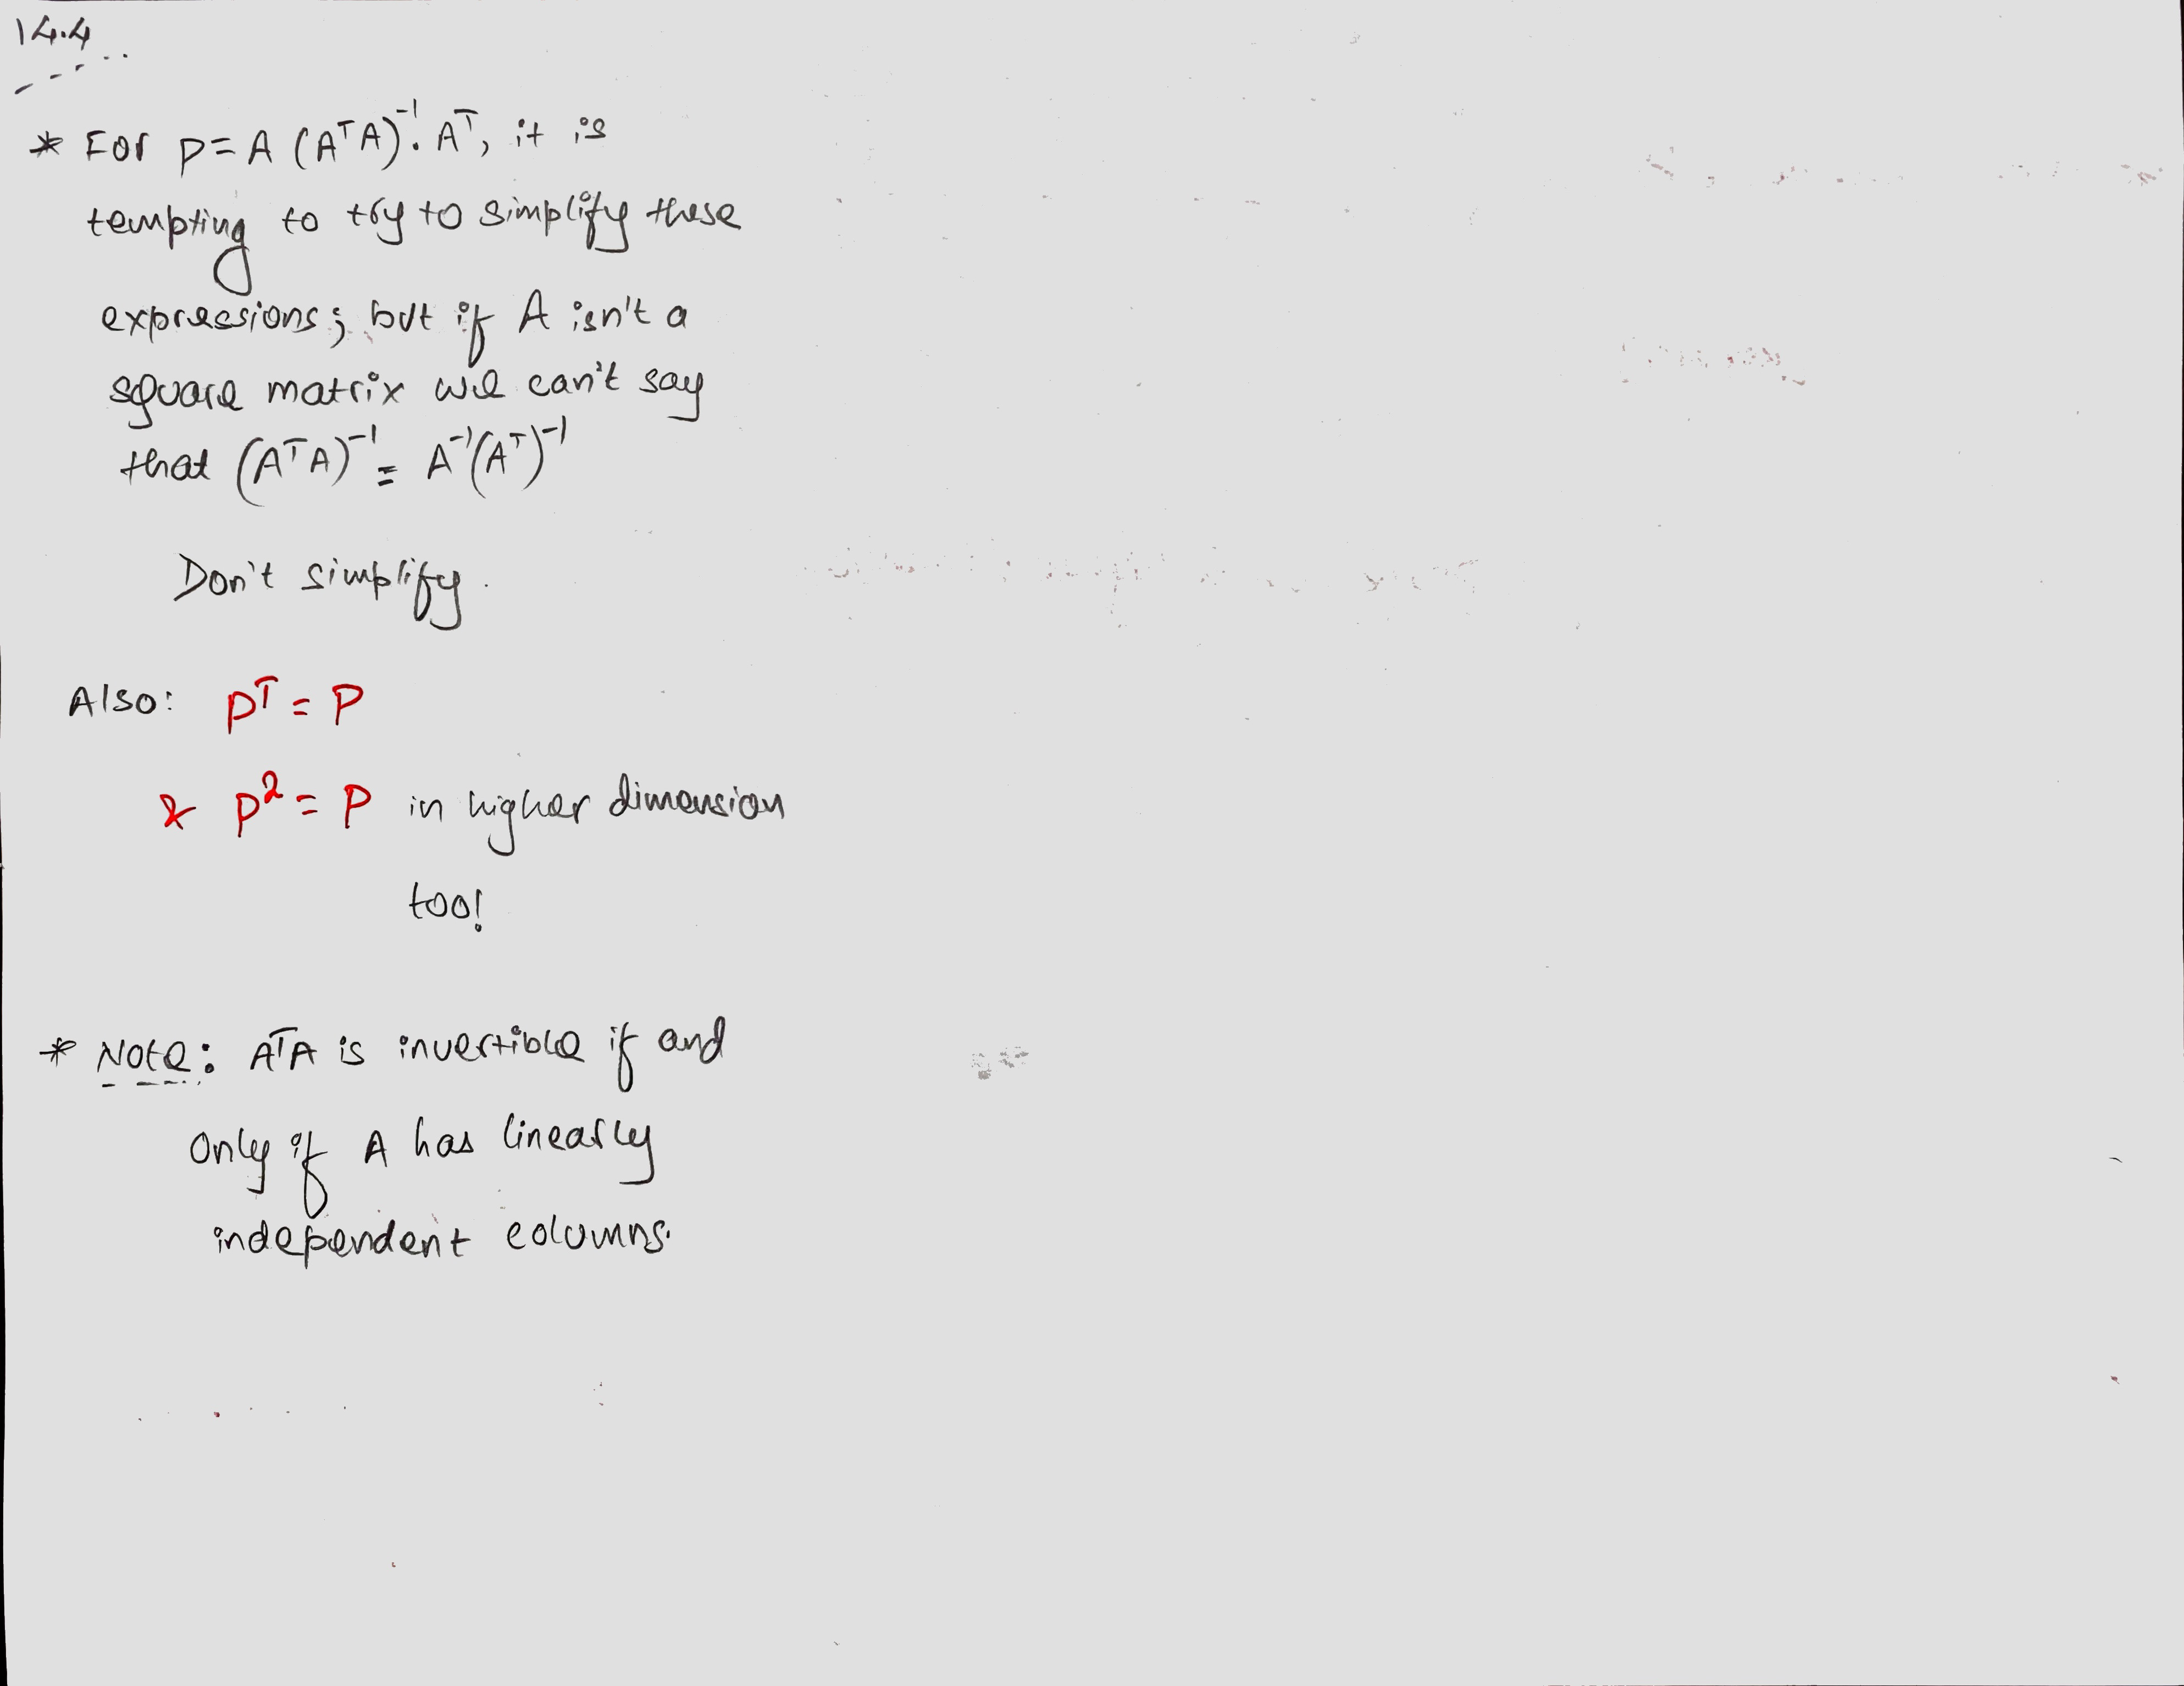 14.4
* For P = A (AᵀA)⁻¹. Aᵀ, it is
tempting to try to simplify these
expressions; but if A isn't a
square matrix we can't say
that (AᵀA)⁻¹ = A⁻¹(Aᵀ)⁻¹
Don't simplify.
Also: Pᵀ = P
& P² = P in higher dimension
too!
* Note: AᵀA is invertible if and
only if A has linearly
independent columns.